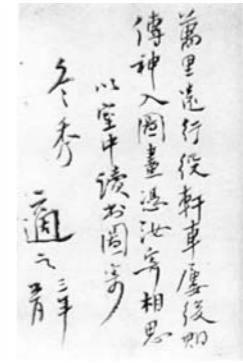 萬里遠行役軒車屢後期
傳神入圖畫憑汝寄相思
以室中讀書圖寄
冬秀
適之 三年 月